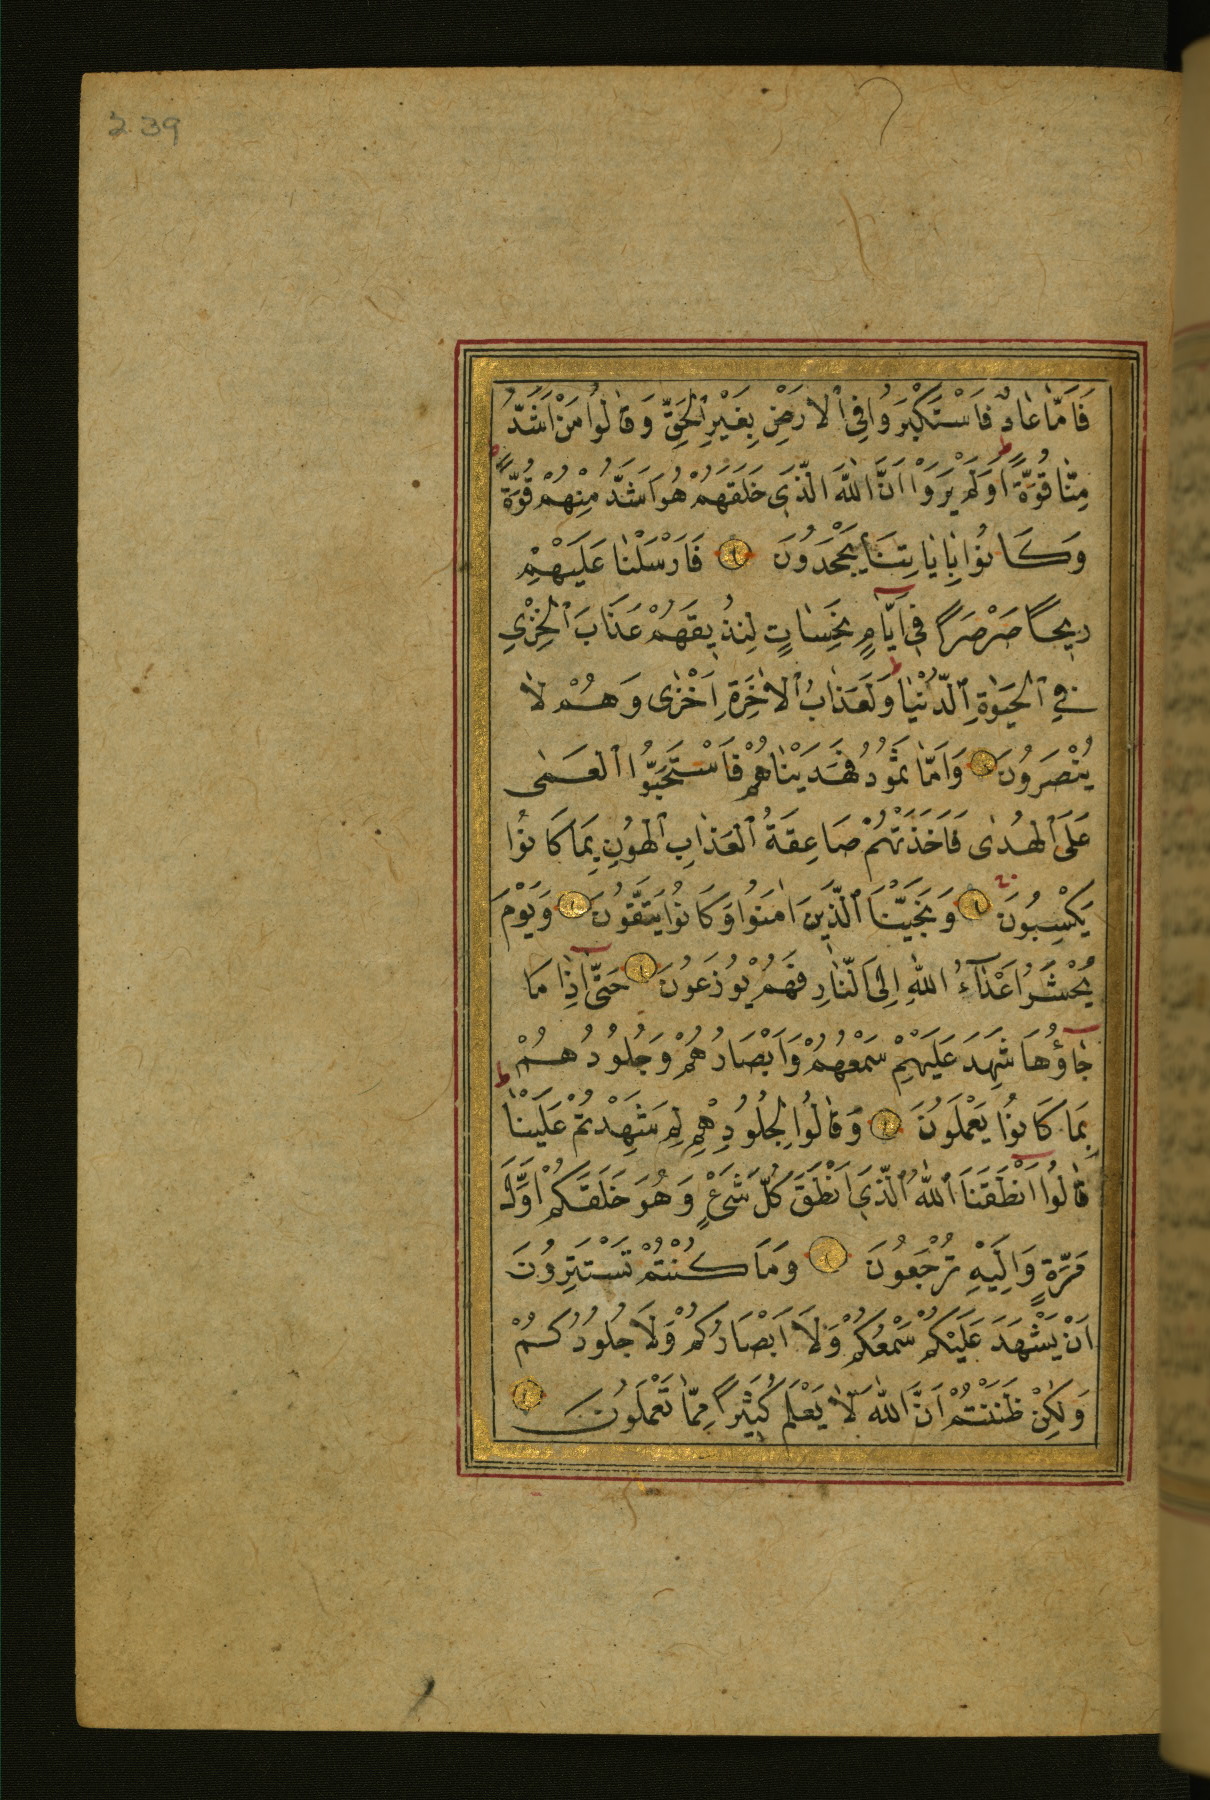 239
فَاَمَّا عَادٌ فَاسْتَكْبَرُوا فِى الْاَرْضِ بِغَيْرِ الْحَقِّ وَقَالُوا مَنْ اَشَدُّ
مِنَّا قُوَّةً ط اَوَلَمْ يَرَوْا اَنَّ اللّٰهَ الَّذِى خَلَقَهُمْ هُوَ اَشَدُّ مِنْهُمْ قُوَّةً ط
وَكَانُوا بِاٰيَاتِنَا يَجْحَدُونَ فَاَرْسَلْنَا عَلَيْهِمْ
رِيحًا صَرْصَرًا فِى اَيَّامٍ نَحِسَاتٍ لِنُذِيقَهُمْ عَذَابَ الْخِزْىِ
فِى الْحَيٰوةِ الدُّنْيَا ط وَلَعَذَابُ الْاٰخِرَةِ اَخْزٰى وَهُمْ لَا
يُنْصَرُونَ وَاَمَّا ثَمُودُ فَهَدَيْنَاهُمْ فَاسْتَحَبُّوا الْعَمٰى
عَلَى الْهُدٰى فَاَخَذَتْهُمْ صَاعِقَةُ الْعَذَابِ الْهُونِ بِمَا كَانُوا
يَكْسِبُونَ وَنَجَّيْنَا الَّذِينَ اٰمَنُوا وَكَانُوا يَتَّقُونَ وَيَوْمَ
يُحْشَرُ اَعْدَآءُ اللّٰهِ اِلَى النَّارِ فَهُمْ يُوزَعُونَ حَتّٰى اِذَا مَا
جَآؤُهَا شَهِدَ عَلَيْهِمْ سَمْعُهُمْ وَاَبْصَارُهُمْ وَجُلُودُهُمْ
بِمَا كَانُوا يَعْمَلُونَ وَقَالُوا لِجُلُودِهِمْ لِمَ شَهِدْتُمْ عَلَيْنَا ط
قَالُوا اَنْطَقَنَا اللّٰهُ الَّذِى اَنْطَقَ كُلَّ شَىْءٍ وَهُوَ خَلَقَكُمْ اَوَّلَ
مَرَّةٍ وَاِلَيْهِ تُرْجَعُونَ وَمَا كُنْتُمْ تَسْتَتِرُونَ
اَنْ يَشْهَدَ عَلَيْكُمْ سَمْعُكُمْ وَلَا اَبْصَارُكُمْ وَلَا جُلُودُكُمْ
وَلٰكِنْ ظَنَنْتُمْ اَنَّ اللّٰهَ لَا يَعْلَمُ كَثِيرًا مِمَّا تَعْمَلُونَ